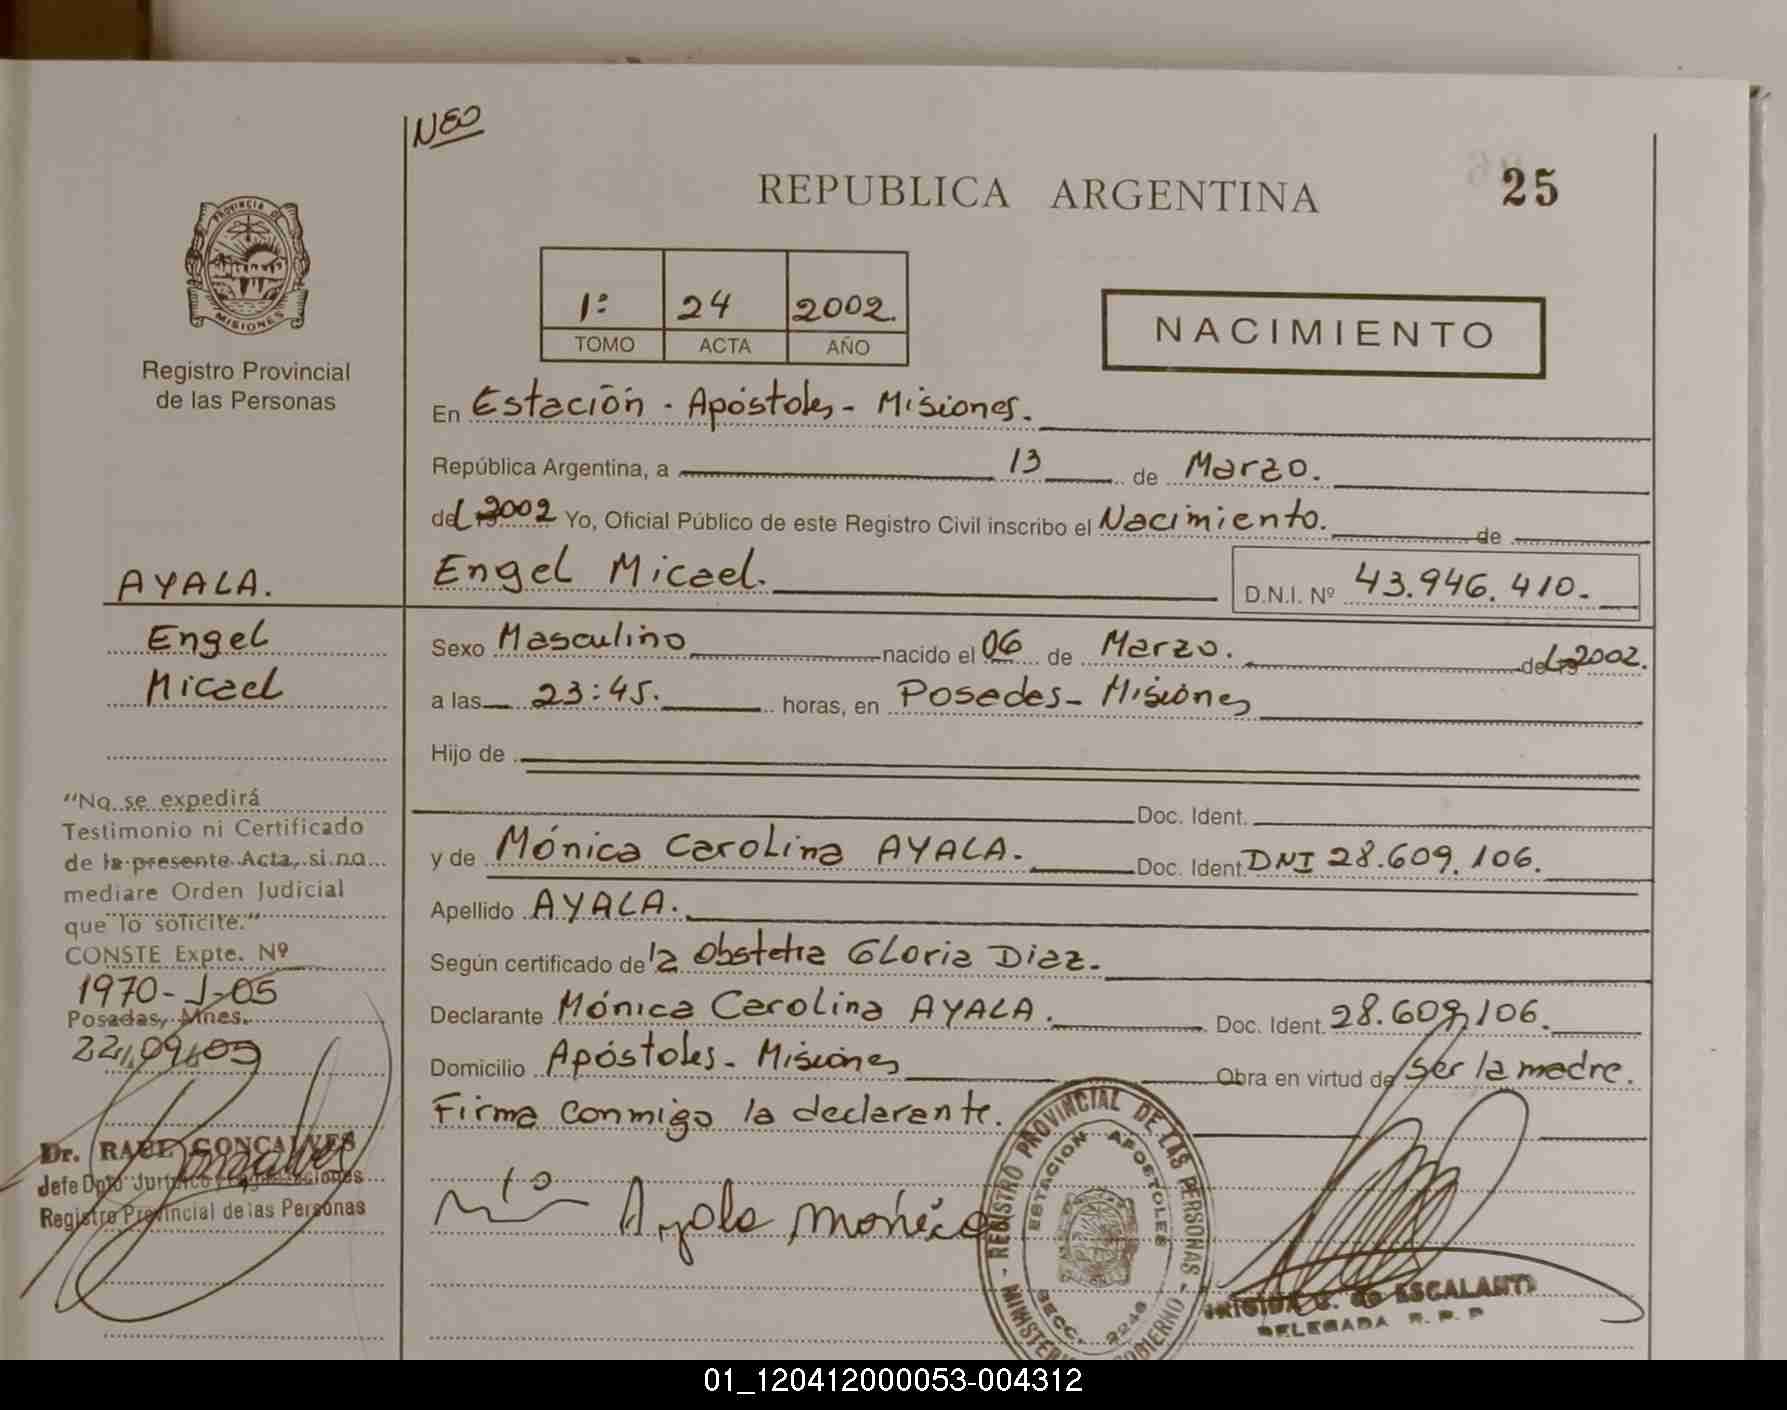 NEO
REPUBLICA ARGENTINA
25
PROVINCIA DE
MISIONES
Registro Provincial
de las Personas
1º 24 2002.
TOMO ACTA AÑO
NACIMIENTO
En Estación - Apóstoles - Misiones.
República Argentina, a 13 de Marzo.
del 2002 Yo, Oficial Público de este Registro Civil inscribo el Nacimiento. de
Engel Micael. D.N.I. Nº 43.946.410.-
AYALA.
Engel
Micael
Sexo Masculino nacido el 06 de Marzo. del 2002.
a las 23:45. horas, en Posadas - Misiones
Hijo de
Doc. Ident.
y de Mónica Carolina AYALA. Doc. Ident. DNI 28.609.106.
Apellido AYALA.
Según certificado de la Obstetra Gloria Diaz.
Declarante Mónica Carolina AYALA. Doc. Ident. 28.609.106.
Domicilio Apóstoles - Misiones Obra en virtud de ser la madre.
Firma conmigo la declarante.
"No se expedirá
Testimonio ni Certificado
de la presente Acta, si no
mediare Orden Judicial
que lo solicite."
CONSTE Expte. Nº
1970-J-05
Posadas, Mnes.
22/09/05
Dr. RAUL GONCALVES
Jefe Dpto Jurídico y
Registro Provincial de las Personas
Ayala Mónica
REGISTRO PROVINCIAL DE LAS PERSONAS - MINISTERIO GOBIERNO
ESTACION APOSTOLES
SECC. 2246
G. de ESCALANTE
DELEGADA R. P. P
01_120412000053-004312